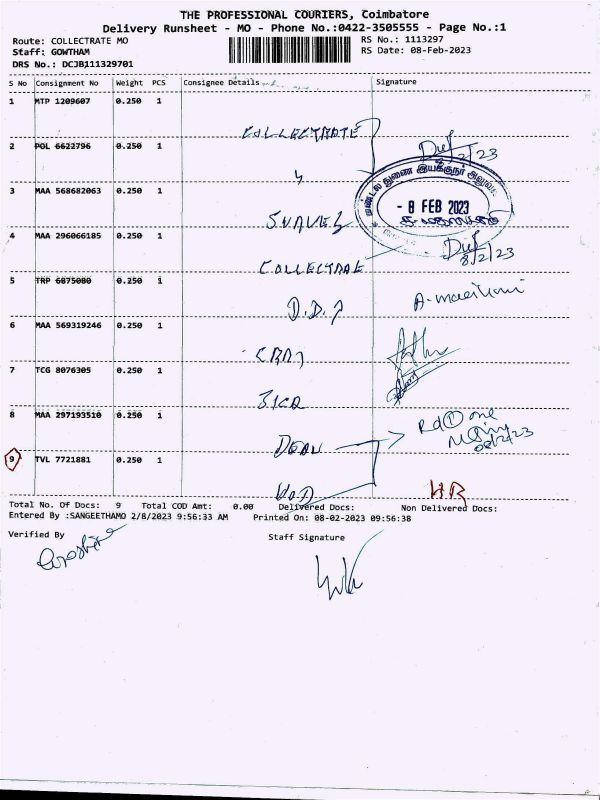 THE PROFESSIONAL COURIERS, Coimbatore
Delivery Runsheet - MO - Phone No.:0422-3505555 - Page No.:1
Route: COLLECTRATE MO RS No.: 1113297
Staff: GOWTHAM RS Date: 08-Feb-2023
DRS No.: DCJB111329701
S No Consignment No Weight PCS Consignee Details Signature
1 MTP 1209607 0.250 1
COLLECTRATE
2 POL 6622796 0.250 1
2/23
3 MAA 568682063 0.250 1
- 8 FEB 2023
4 MAA 296066185 0.250 1
COLLECTRAE 8/2/23
5 TRP 6875080 0.250 1
6 MAA 569319246 0.250 1
7 TCG 8076305 0.250 1
8 MAA 297193510 0.250 1
DEAN 08/2/23
9 TVL 7721881 0.250 1
Total No. Of Docs: 9 Total COD Amt: 0.00 Delivered Docs: Non Delivered Docs:
Entered By :SANGEETHAMO 2/8/2023 9:56:33 AM Printed On: 08-02-2023 09:56:38
Verified By Staff Signature